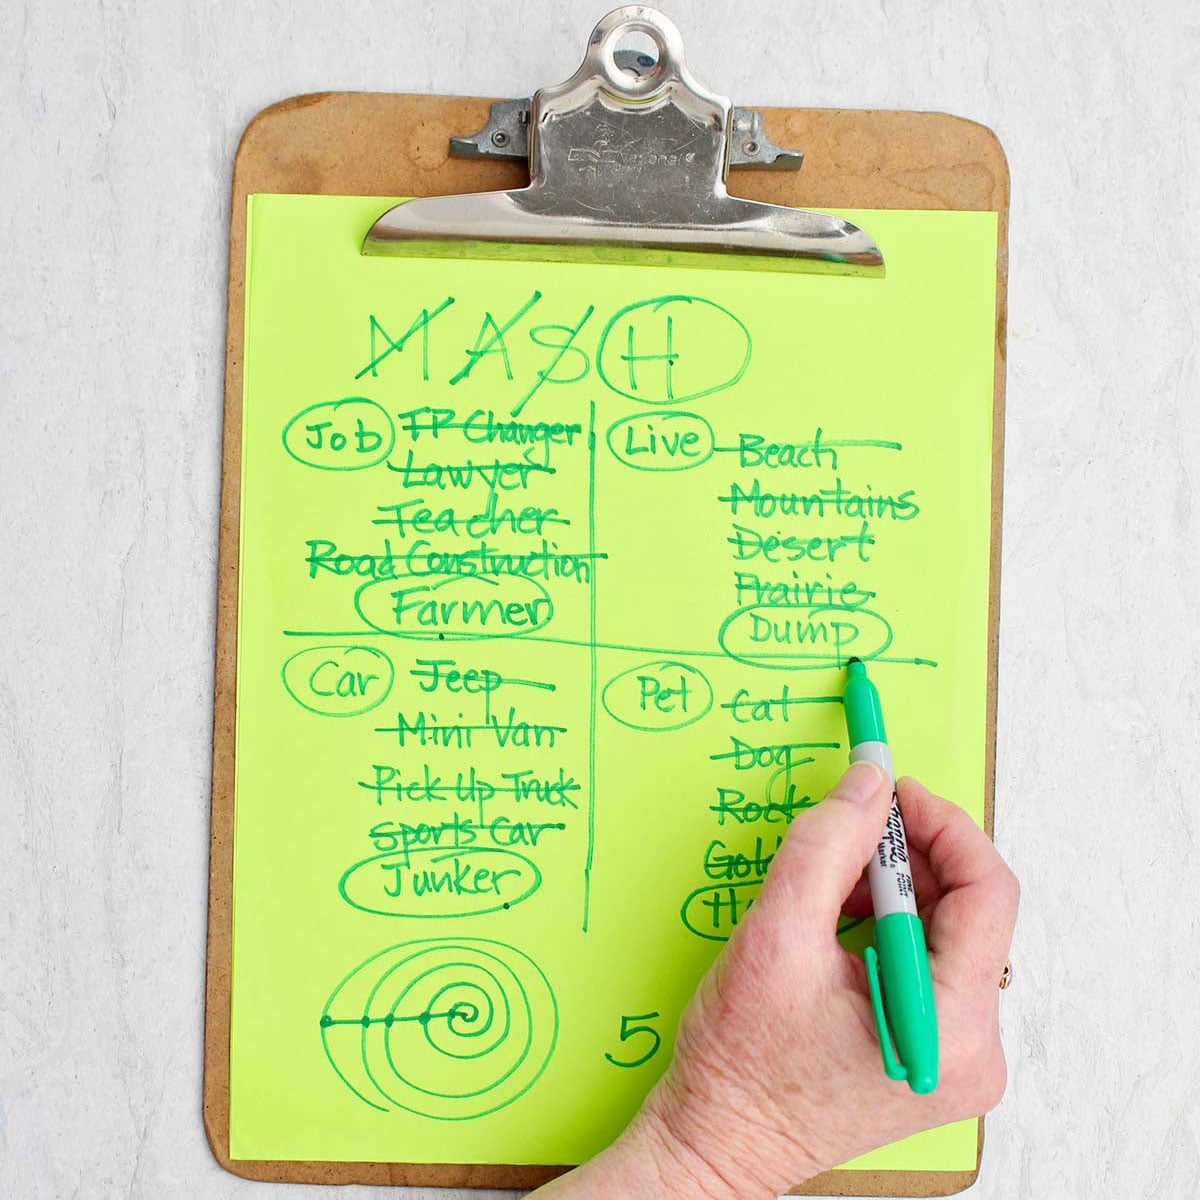 MASH
Job
TP Changer
Lawyer
Teacher
Road Construction
Farmer
Live
Beach
Mountains
Desert
Prairie
Dump
Car
Jeep
Mini Van
Pick Up Truck
Sports Car
Junker
Pet
Cat
Dog
Rock
5
Sharpie
FINE POINT
Marker
National